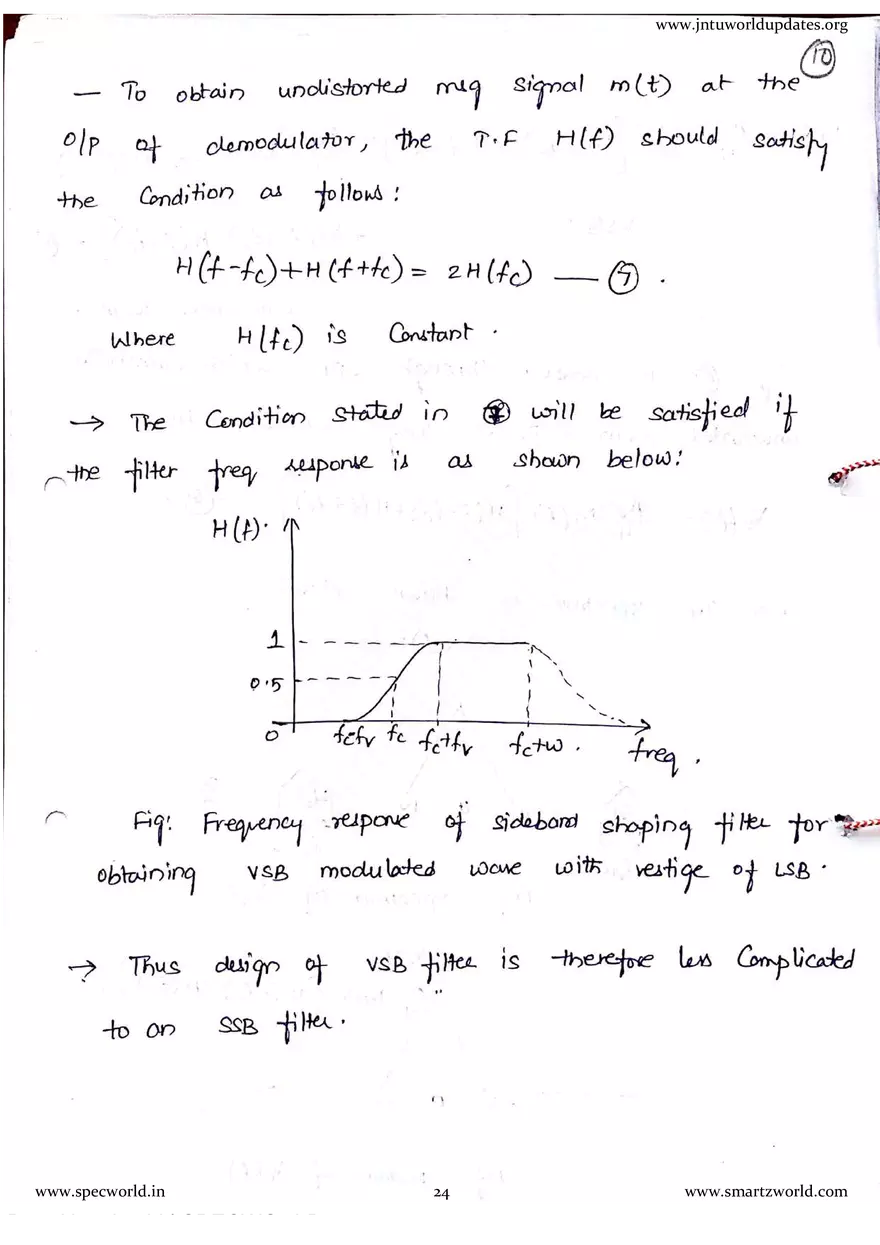 www.jntuworldupdates.org
10
— To obtain undistorted msg signal m(t) at the
O/P of demodulator, the T.F H(f) should satisfy
the Condition as follows:
H(f-fc)+H(f+fc) = 2H(fc) — 7 .
Where H(fc) is Constant .
→ The Condition stated in 7 will be satisfied if
the filter freq response is as shown below:
H(f).
1
0.5
0 fc-fv fc fc+fv fc+w . freq .
Fig: Frequency response of sideband shaping filter for
obtaining VSB modulated wave with vestige of LSB .
→ Thus design of VSB filter is therefore less Complicated
to an SSB filter .
www.specworld.in 24 www.smartzworld.com